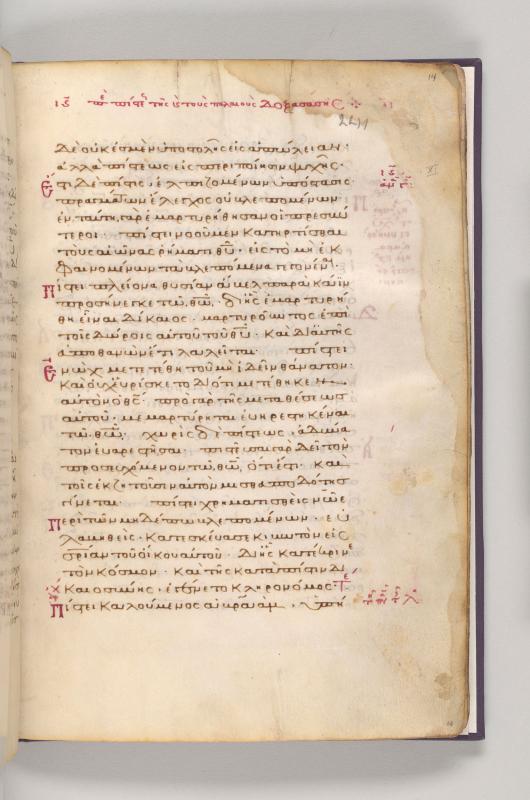 14
ιϛ περὶ πίστεως τῆς εἰς τοὺς παλαιοὺς δοξασάσης
δὲ οὐκ ἐσμὲν ὑποστολῆς εἰς ἀπώλειαν·
ἀλλὰ πίστεως εἰς περιποίησιν ψυχῆς·
Ἔστι δὲ πίστις, ἐλπιζομένων ὑπόστασις
πραγμάτων ἔλεγχος οὐ βλεπομένων·
ἐν ταύτῃ γὰρ ἐμαρτυρήθησαν οἱ πρεσβύ
τεροι· πίστει νοοῦμεν κατηρτίσθαι
τοὺς αἰῶνας ῥήματι θ̅υ̅· εἰς τὸ μὴ ἐκ
φαινομένων τὰ βλεπόμενα γεγονέναι·
Πίστει πλείονα θυσίαν ἄβελ παρὰ κάϊν
προσήνεγκε τῷ θ̅ω̅· δι' ἧς ἐμαρτυρή
θη εἶναι δίκαιος· μαρτυροῦντος ἐπὶ
τοῖς δώροις αὐτοῦ τοῦ θ̅υ̅· καὶ δι' αὐτῆς
ἀποθανὼν ἔτι λαλεῖται· πίστει
Ἐνὼχ μετετέθη τοῦ μὴ ἰδεῖν θάνατον·
καὶ οὐχ εὑρίσκετο διότι μετέθηκεν
αὐτὸν ὁ θ̅ς̅· πρὸ γὰρ τῆς μεταθέσεως
αὐτοῦ· μεμαρτύρηται εὐηρεστηκέναι
τῷ θ̅ω̅· χωρὶς δὲ πίστεως, ἀδύνα
τον εὐαρεστῆσαι· πιστεῦσαι γὰρ δεῖ τὸν
προσερχόμενον τῷ θ̅ω̅, ὅτι ἔστι· καὶ
τοῖς ἐκζητοῦσιν αὐτὸν μισθαποδότης
γίνεται· πίστει χρηματισθεὶς νῶε
Περὶ τῶν μηδέπω βλεπομένων· εὐ
λαβηθεὶς· κατεσκεύασε κιβωτὸν εἰς
σ̅ρ̅ίαν τοῦ οἴκου αὐτοῦ· δι' ἧς κατέκρινε
τὸν κόσμον· καὶ τῆς κατὰ πίστιν δι
καιοσύνης, ἐγένετο κληρονόμος·
Πίστει καλούμενος ἀβραὰμ,